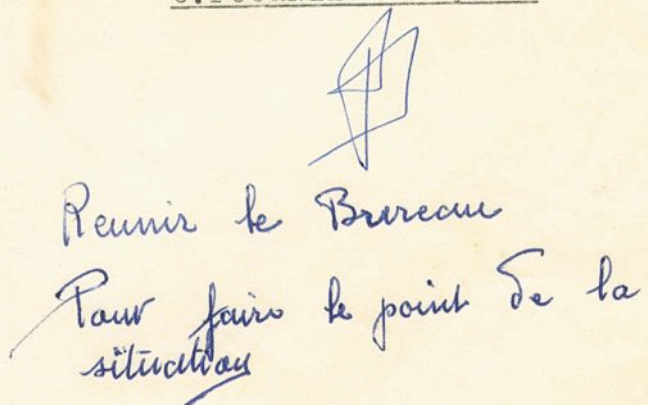 Reunir le Bureau
Pour faire le point de la
situation